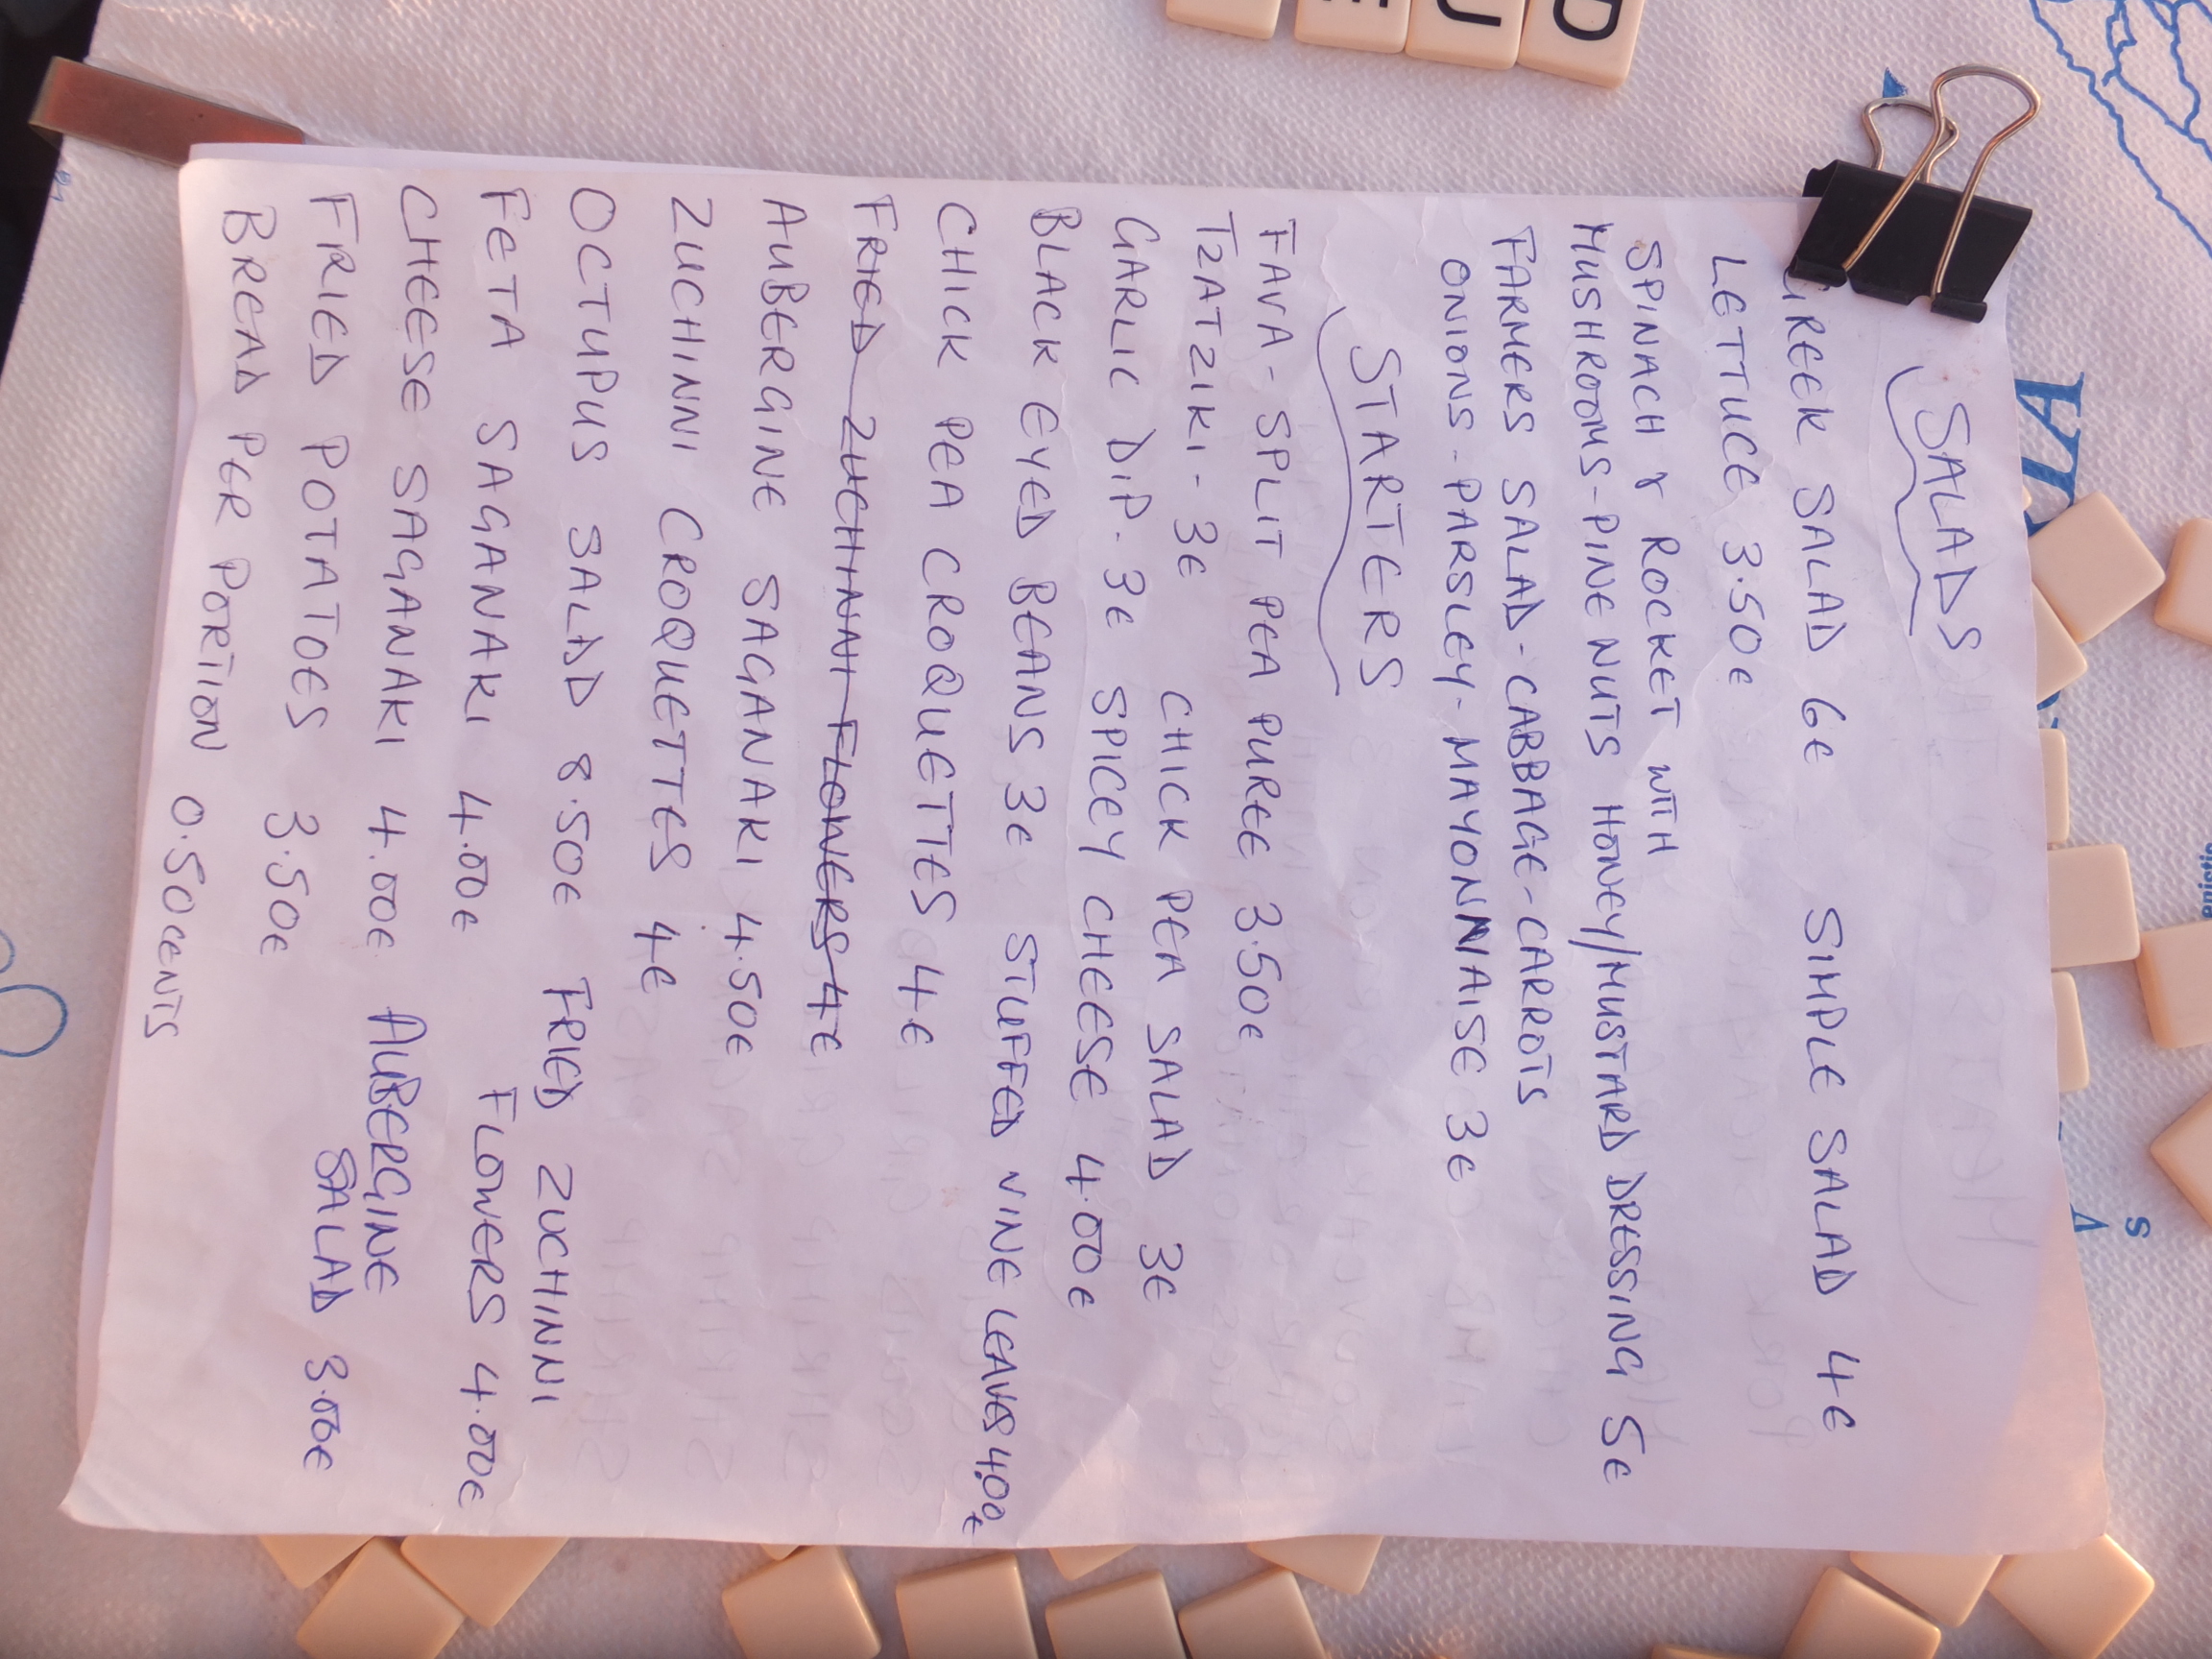 SALADS
GREEK SALAD 6€ SIMPLE SALAD 4€
LETTUCE 3.50€
SPINACH & ROCKET WITH
MUSHROOMS-PINE NUTS HONEY/MUSTARD DRESSING 5€
FARMERS SALAD-CABBAGE-CARROTS
ONIONS-PARSLEY-MAYONNAISE 3€
STARTERS
FAVA - SPLIT PEA PUREE 3.50€
TZATZIKI - 3€ CHICK PEA SALAD 3€
GARLIC DIP. 3€ SPICEY CHEESE 4.00€
BLACK EYED BEANS 3€ STUFFED VINE LEAVES 4.00€
CHICK PEA CROQUETTES 4€
FRIED ZUCHINNI FLOWERS 4€
AUBERGINE SAGANAKI 4.50€
ZUCHINNI CROQUETTES 4€
OCTUPUS SALAD 8.50€ FRIED ZUCHINNI
FETA SAGANAKI 4.00€ FLOWERS 4.00€
CHEESE SAGANAKI 4.00€ AUBERGINE
SALAD 3.00€
FRIED POTATOES 3.50€
BREAD PER PORTION 0.50CENTS
D
U
E